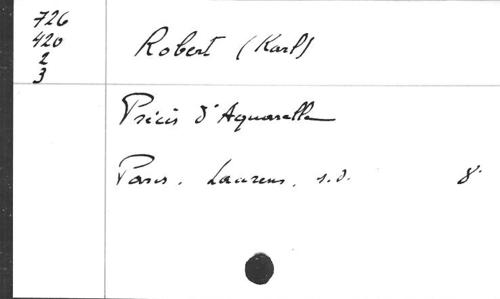 726
420
2
3
Robert (Karl)
Précis d'Aquarelle
Paris. Laurens. s.d. 8°